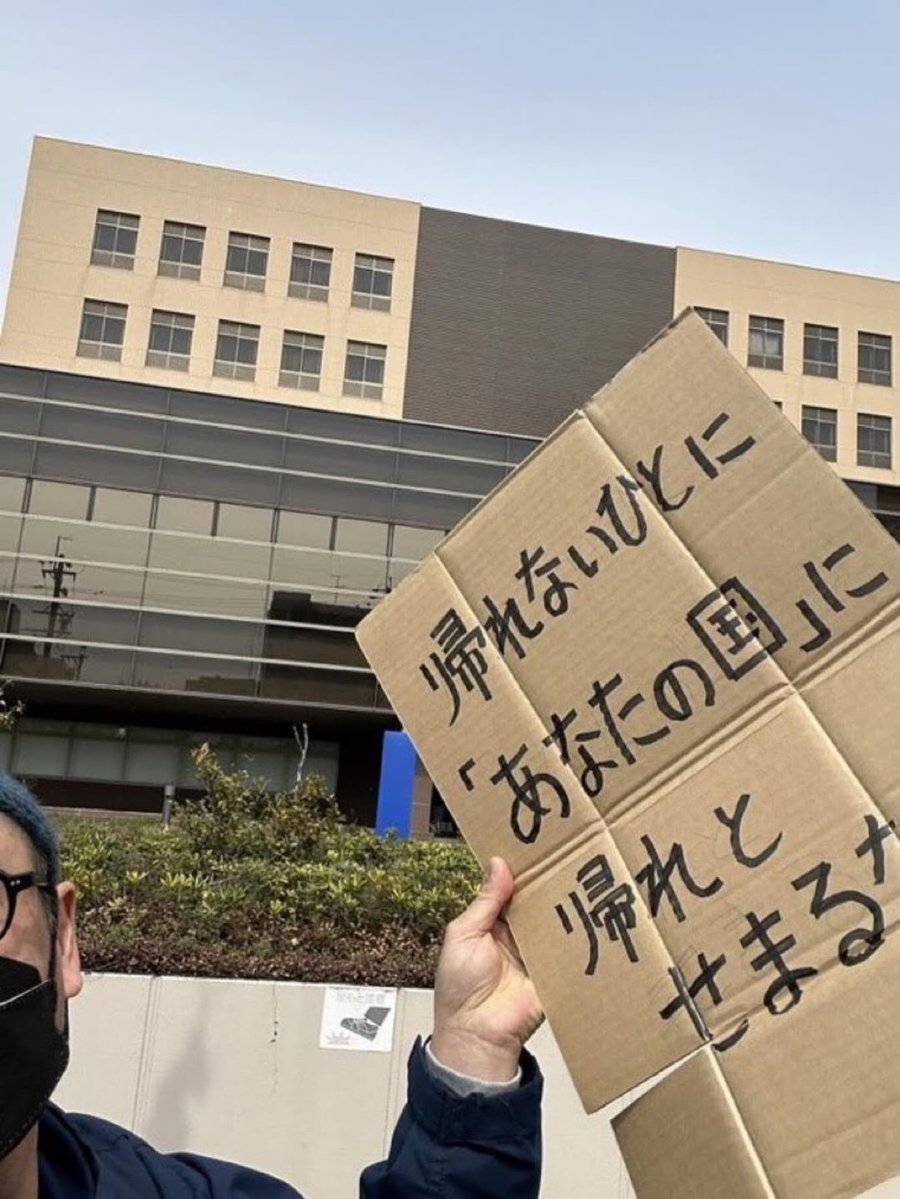 帰れないひとに
「あなたの国」に
帰れと
せまるな